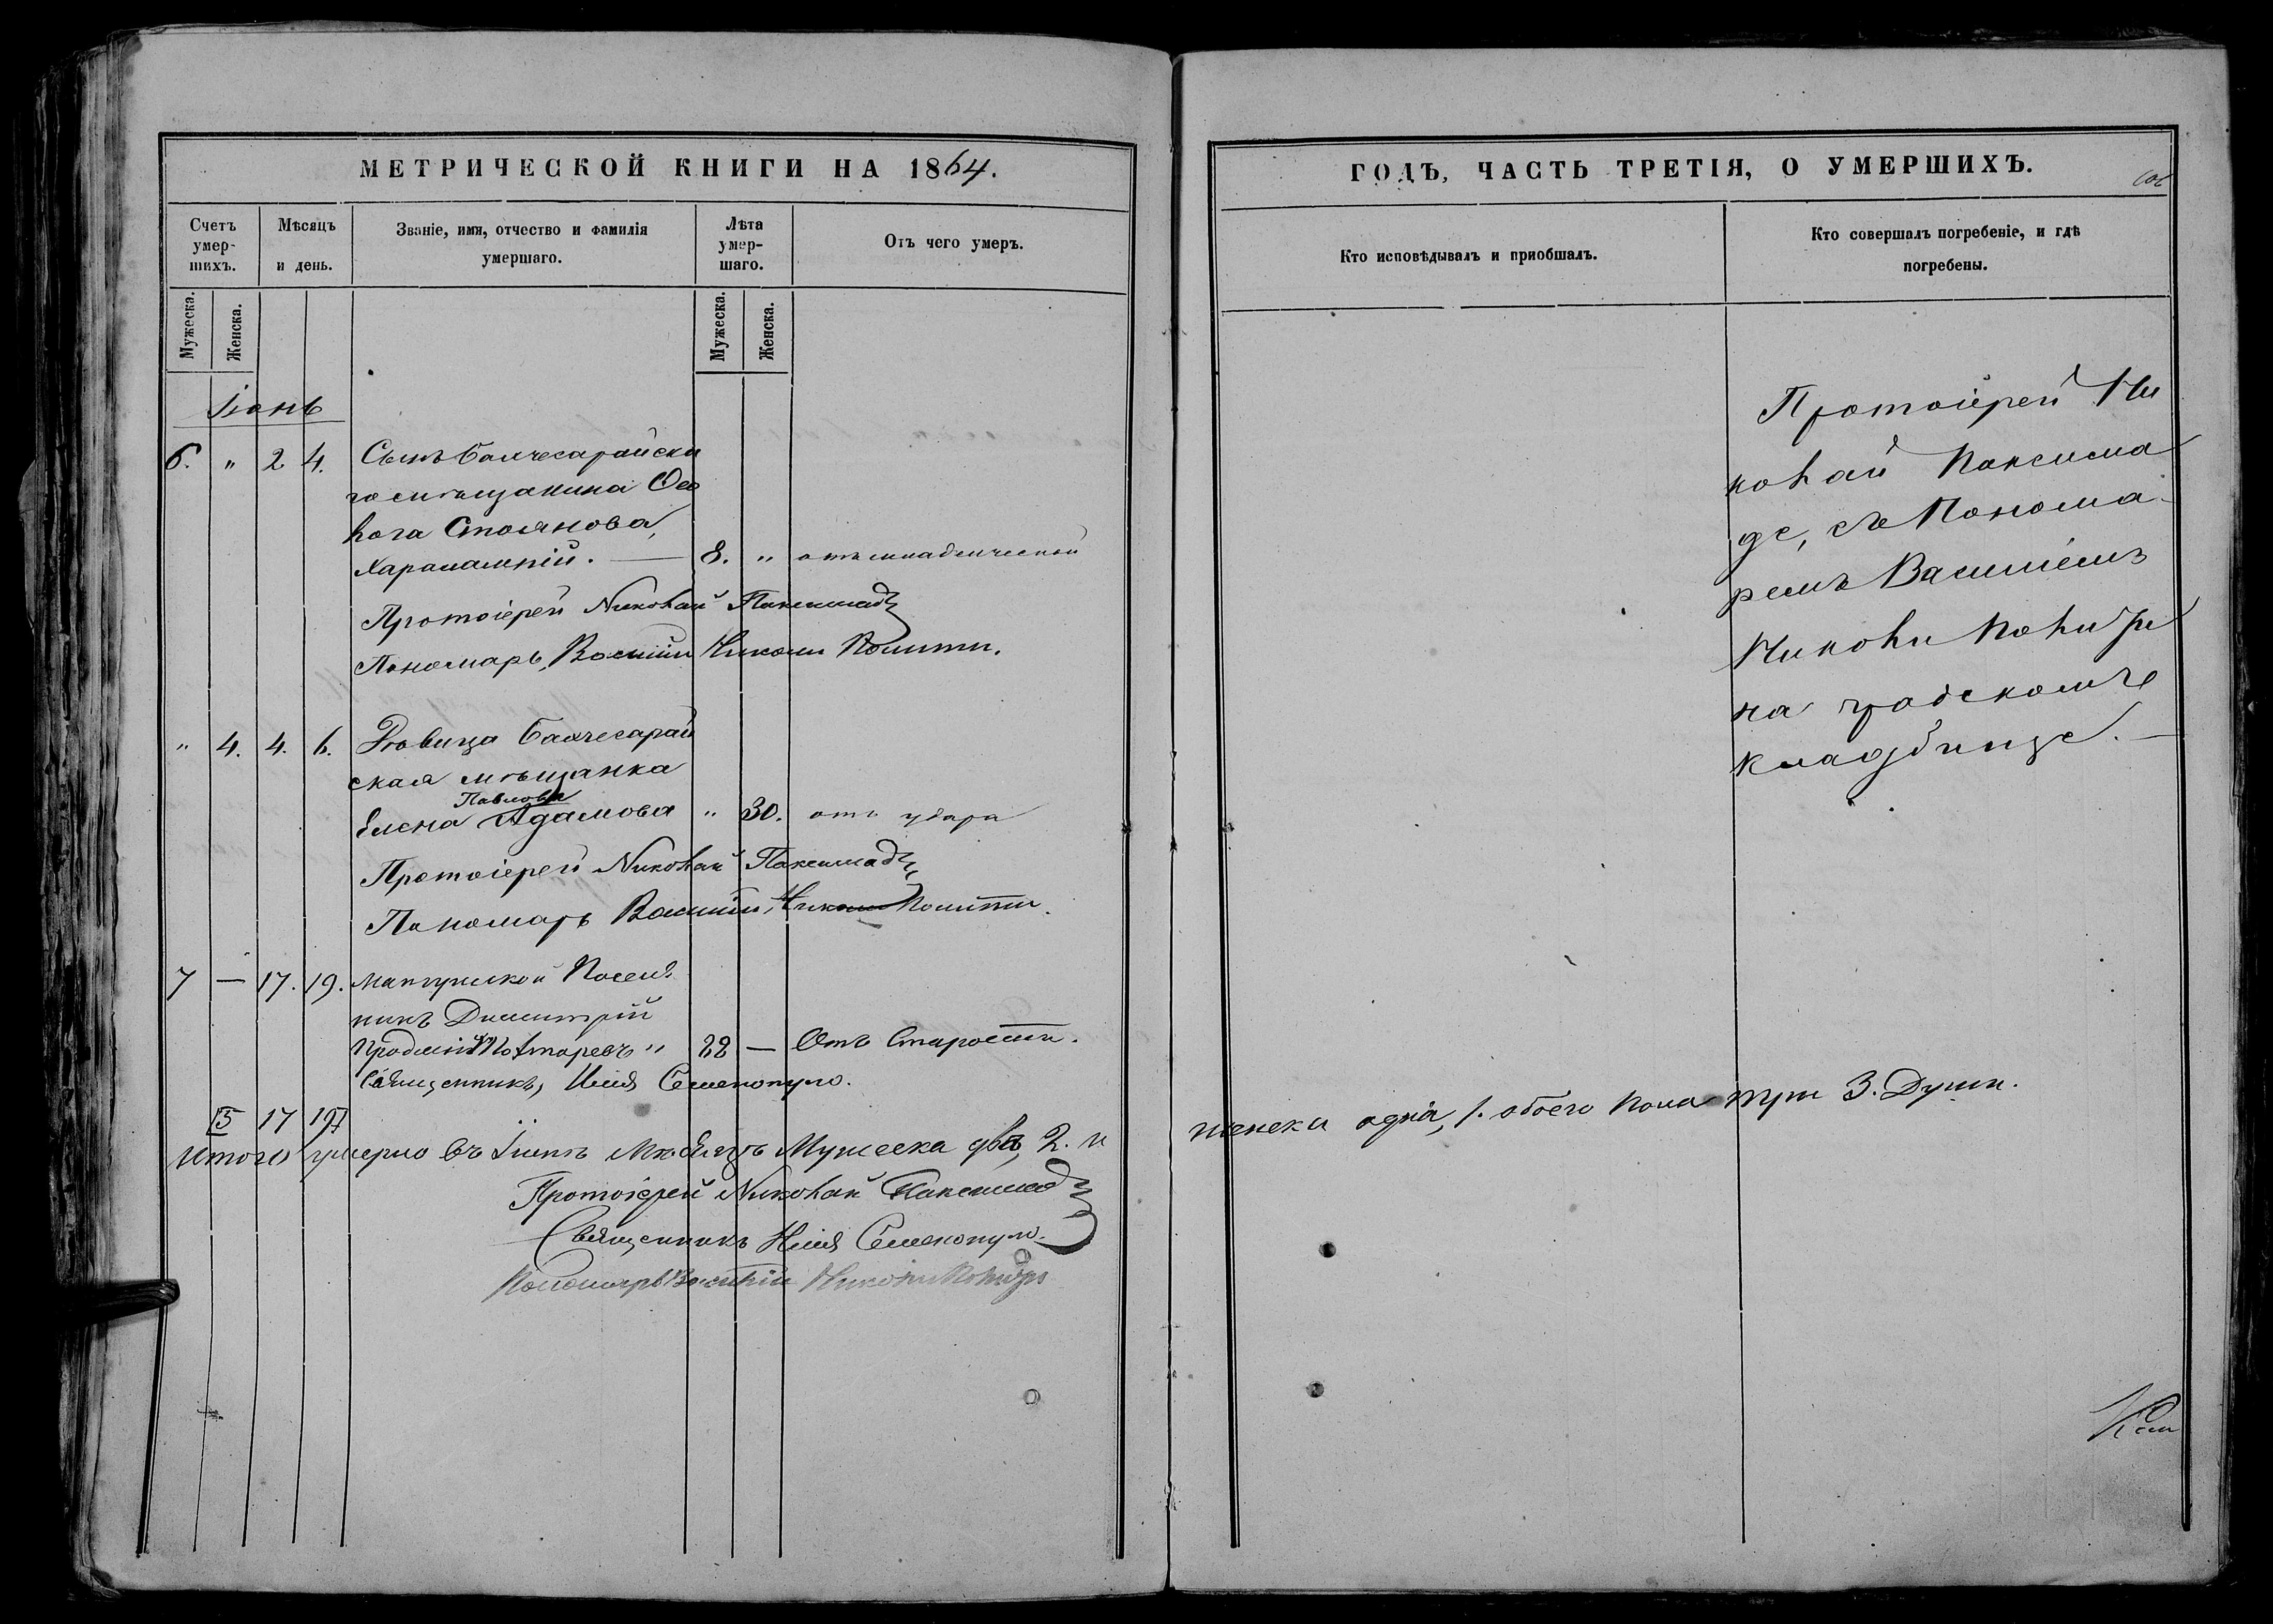 МЕТРИЧЕСКОЙ КНИГИ НА 1864.
Счетъ умер-шихъ.
Мѣсяцъ и день.
Званіе, имя, отчество и фамилія умершаго.
Лѣта умер-шаго.
Отъ чего умеръ.
Мужеска. Женска.
Мужеска. Женска.
Іюнь
6. " 2 4. Сынъ бахчесарайска
го мѣщанина Ѳео
Стоянова,
Харалампій. — 8. " отъ младенческой
Протоіерей Николай Паксимадъ
Пономарь, Василій Николи Политти.
" 4. 4. 6. Вдовица Бахчесарай
ская мѣщанка
Павлова
Елена Адамова " 30. отъ удара
Протоіерей Николай Паксимадъ
Пономарь Василій, Николи Политти.
7 — 17. 19. Поселя
нинъ Димитрій
" 82 — Отъ Старости.
Священникъ, Илія Семенопуло.
5 17 19
Итого умерло въ Іюнѣ Мѣсяцѣ Мужеска два, 2. и
Протоіерей Николай Паксимадъ
Священникъ Илія Семенопуло.
Пономарь Василій Николи
ГОДЪ, ЧАСТЬ ТРЕТІЯ, О УМЕРШИХЪ.
Кто исповѣдывалъ и пріобщалъ.
Кто совершалъ погребеніе, и гдѣ погребены.
Протоіерей Ни
колай Паксима
де, съ Понома
ремъ Василіемъ
Николи
на градскомъ
кладбище. —
женска одна, 1. обоего пола три 3. Души.